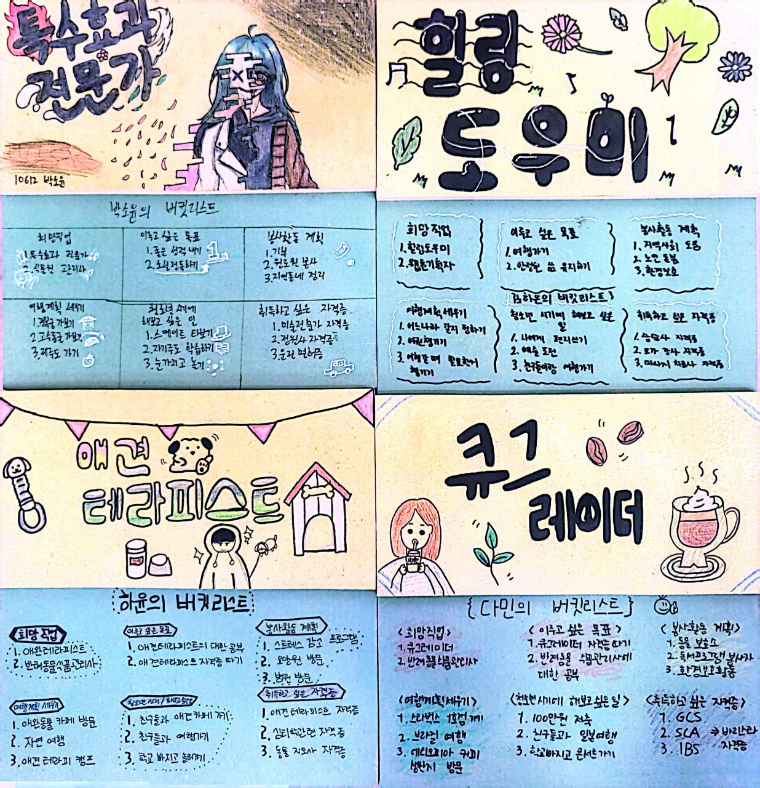 특수효과
전문가
10612 박소윤
박소윤의 버킷리스트
희망직업
1. 특수효과 전문가
2. 식물원 관리사
이루고 싶은 목표
1. 좋은 성적 내기
봉사활동 계획
1. 기부
2. 양로원 봉사
3. 지역동네 정리
여행계획 세우기
3. 제주도 가기
청소년 시기에
해보고 싶은 일
1. 스케이트 타보기
2. 자기주도 학습하기
취득하고 싶은 자격증
1. 미술전문가 자격증
2. 정원사 자격증
3. 운전 면허증
힐링
도우미
희망직업
1. 힐링도우미
2. 웹툰기획자
이루고 싶은 목표
1. 여행가기
2. 안정된 삶 유지하기
봉사활동 계획
1. 지역사회 도움
2. 노인 돌봄
3. 환경보호
버킷리스트
여행계획세우기
1. 어느나라 갈지 정하기
2. 여권챙기기
3. 여행갈 때 필요한거
챙기기
청소년 시기에 해보고 싶은
일
1. 사에게 편지쓰기
2. 예능 도전
3. 친구들이랑 여행가기
취득하고 싶은 자격증
1. 상담사 자격증
2. 요가 강사 자격증
3. 마사지 치료사 자격증
애견
테라피스트
하윤의 버킷리스트
희망 직업
1. 애완테라피스트
2. 반려동물식품관리사
이루고 싶은 목표
1. 애견테라피스트의 대한 공부
2. 애견테라피스트 자격증 따기
봉사활동 계획
1. 스트레스 감소 프로그램
2. 요양원 방문
3. 병원 방문
여행계획 세우기
1. 애완동물 카페 방문
2. 자연 여행
3. 애견 테라피 캠프
1. 친구들과 애견카페 가기
2. 친구들과 여행가기
3. 학교 빠지고 놀러가기
취득하고 싶은 자격증
1. 애견 테라피스트 자격증
2. 심리학관련 자격증
3. 동물 지도사 자격증
큐그
레이더
{다민의 버킷리스트}
<희망직업>
1. 큐그레이더
2. 반려동물식품관리사
<이루고 싶은 목표>
1. 큐그레이더 자격증 따기
2. 반려동물 식품관리사에
대한 공부
<봉사활동 계획>
1. 동물 보호소
2. 독서프로그램 봉사가
3. 환경보호활동
<여행계획세우기>
1. 스타벅스 1호점 가기
2. 브라질 여행
3. 에티오피아 커피
생산지 방문
<청소년시기에 해보고 싶은일>
1. 100만원 저축
2. 친구들과 일본여행
3. 학교빠지고 콘서트가기
<취득하고 싶은 자격증>
1. GCS
2. SCA ⇒ 바리스타
자격증
3. IBS